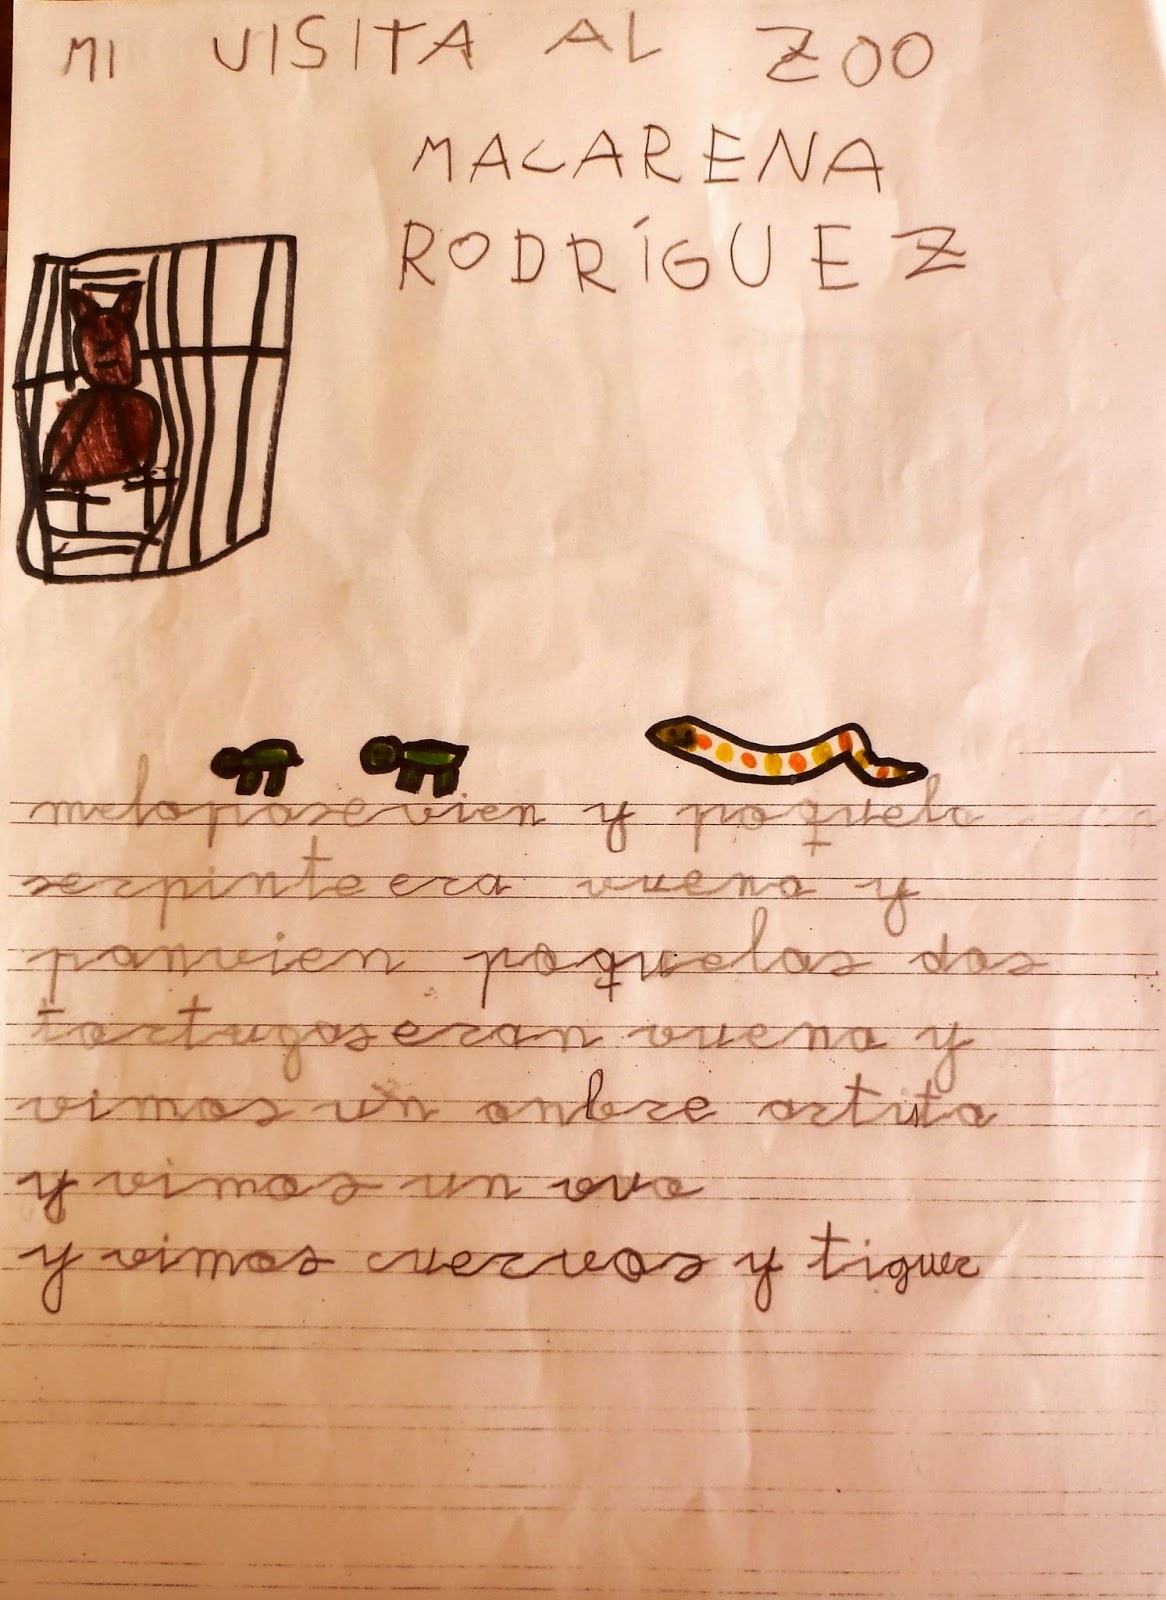 MI VISITA AL ZOO
MACARENA
RODRÍGUEZ
melopasevien y poquela
serpinte era vuena y
panvien poquelas dos
tortugas eran vuena y
vimos un onbre artita
y vimos un ovo
y vimos cuervos y tiguer